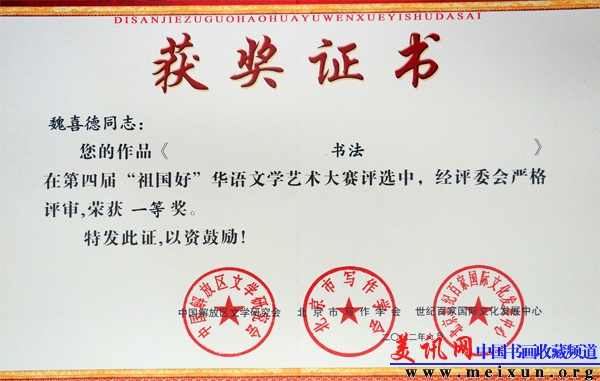 DISANJIEZUGUOHAOHUAYUWENXUEYISHUDASAI
获奖证书
魏喜德同志：
您的作品《 书法 》
在第四届“祖国好”华语文学艺术大赛评选中，经评委会严格
评审，荣获 一等 奖。
特发此证，以资鼓励！
中国解放区文学研究会 北京市写作学会 世纪百家国际文化发展中心
中国解放区文学研究会
北京市写作学会
北京世纪百家国际文化发展中心
美讯网 中国书画收藏频道
www.meixun.org